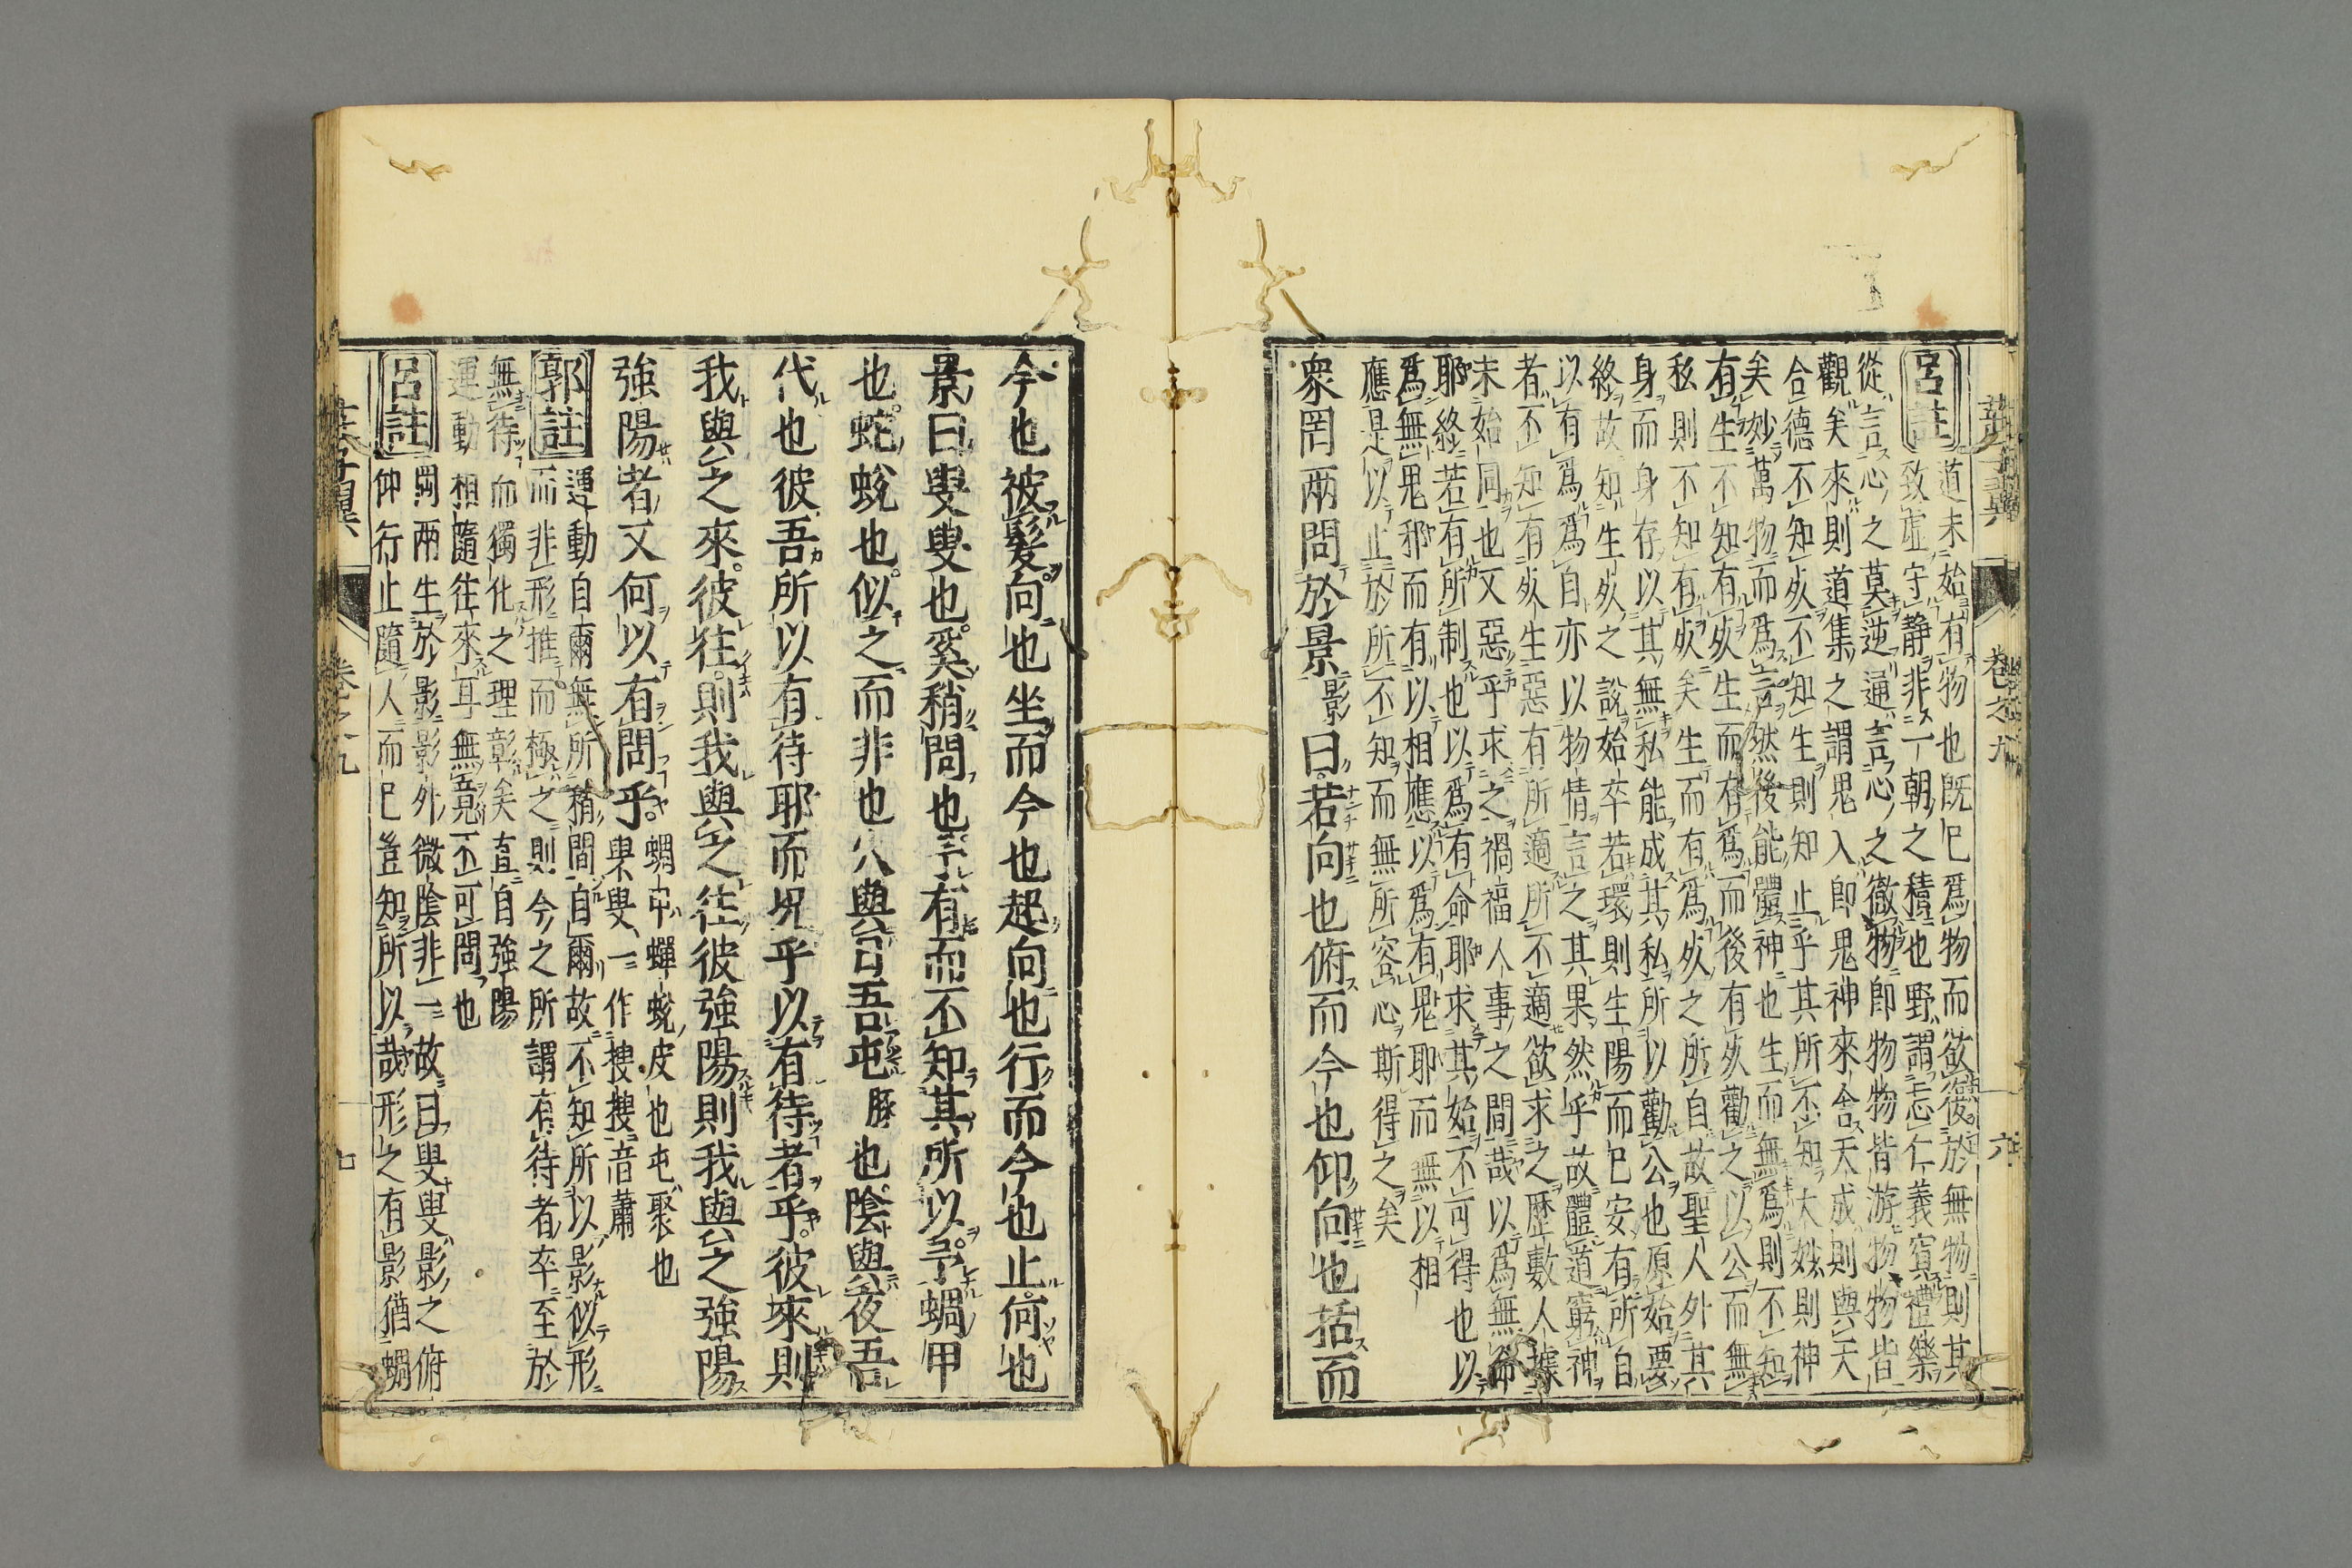 莊子翼 卷之九 六
呂註 道未始有物也既已爲物而欲復於無物則其
致虛守靜非一朝之積也野謂忘仁義賓禮樂
從言心之莫逆通言心之徹物即物物皆游物物皆
觀矣來則道集之謂鬼入即鬼神來舍天成則與天
合德不知死不知生則知止乎其所不知大妙則神
矣妙萬物而爲言然後能體神也生而無爲則不知
有生不知有死生而有爲而後有死勸之以公而無
私則不知有死矣生而有爲死之所自故聖人外其
身而身存以其無私能成其私所以勸公也原始要
終故知生死之說始卒若環則生陽而已安有所自
以有爲爲自亦以物情言之其果然乎故體道窮神
者不知有死生惡有所適所不適欲求之歷數人據
未始同也又惡乎求之禍福人事之間哉以爲無命
耶終若有所制也以爲有命耶求其始不可得也以
爲無鬼邪而有以相應以爲有鬼耶而無以相
應是以止於所不知而無所容心斯得之矣
衆罔兩問於景影曰若向也俯而今也仰向也括而
今也被髮向也坐而今也起向也行而今也止何也
景曰叟叟也奚稍問也予有而不知其所以予蜩甲
也蛇蛻也似之而非也火與日吾屯豚也陰與夜吾
代也彼吾所以有待耶而况乎以有待者乎彼來則
我與之來彼往則我與之往彼強陽則我與之強陽
強陽者又何以有問乎 蜩甲蟬蛻皮也屯聚也
叟叟一作搜搜音蕭
郭註 運動自爾無所稍問自爾故不知所以影似形
而非形推而極之則今之所謂有待者卒至於
無待而獨化之理彰矣直自強陽
運動相隨往來耳無意不可問也
呂註 罔兩生於影影外微陰非一故曰叟叟影之俯
仰行止隨人而已豈知所以哉形之有影猶蜩
莊子翼 卷之九 七